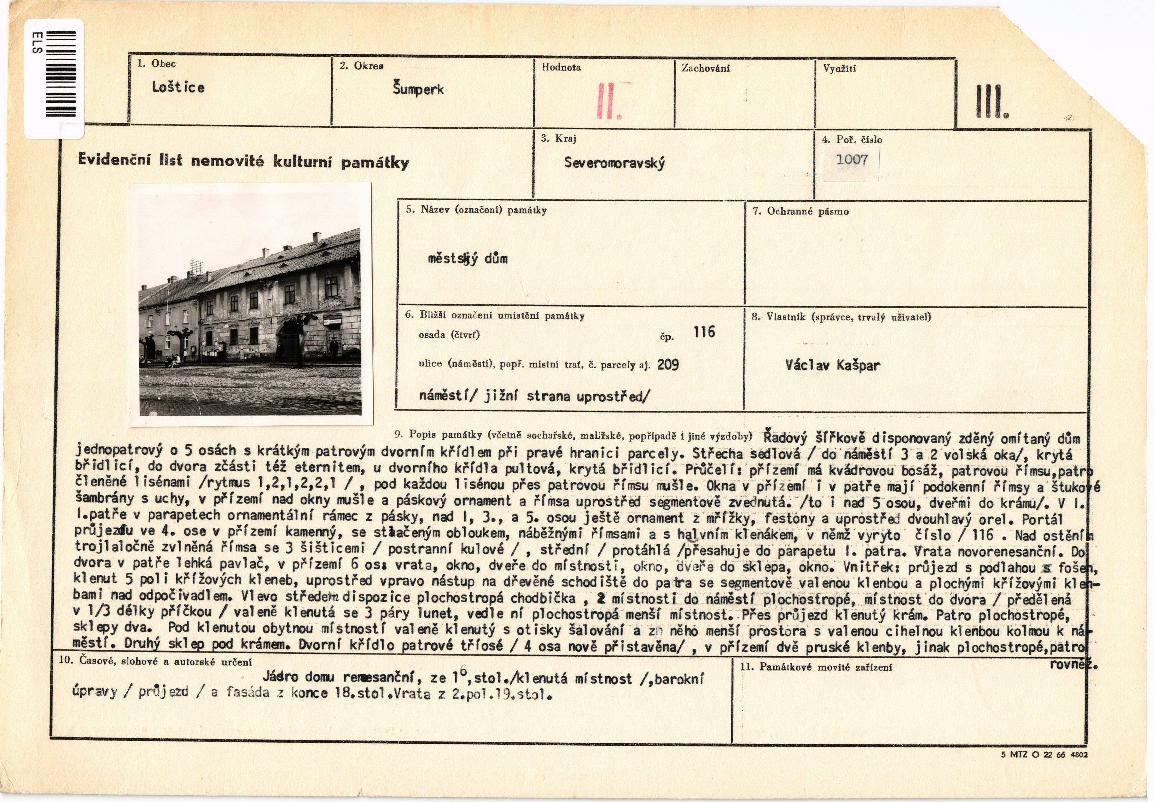 ELS
1. Obec
Loštice
2. Okres
Šumperk
Hodnota
II.
Zachování
Využití
III.
Evidenční list nemovité kulturní památky
3. Kraj
Severomoravský
4. Poř. číslo
1007
5. Název (označení) památky
městský dům
7. Ochranné pásmo
6. Bližší označení umístění památky
osada (čtvrť)
čp. 116
ulice (náměstí), popř. místní trať, č. parcely aj. 209
náměstí/ jižní strana uprostřed/
8. Vlastník (správce, trvalý uživatel)
Václav Kašpar
9. Popis památky (včetně sochařské, malířské, popřípadě i jiné výzdoby) Řadový šířkově disponovaný zděný omítaný dům
jednopatrový o 5 osách s krátkým patrovým dvorním křídlem při pravé hranici parcely. Střecha sedlová / do náměstí 3 a 2 volská oka/, krytá
břidlicí, do dvora zčásti též eternitem, u dvorního křídla pultová, krytá břidlicí. Průčelí: přízemí má kvádrovou bosáž, patrovou římsu,patro
členěné lisénami /rytmus 1,2,1,2,2,1 / , pod každou lisénou přes patrovou římsu mušle. Okna v přízemí i v patře mají podokenní římsy a štukové
šambrány s uchy, v přízemí nad okny mušle a páskový ornament a římsa uprostřed segmentově zvednutá. /to i nad 5 osou, dveřmi do krámu/. V I.
I.patře v parapetech ornamentální rámec z pásky, nad I, 3., a 5. osou ještě ornament z mřížky, festony a uprostřed dvouhlavý orel. Portál
průjezdu ve 4. ose v přízemí kamenný, se stlačeným obloukem, náběžnými římsami a s hlavním klenákem, v němž vyryto číslo / 116 . Nad ostěním
trojlaločně zvlněná římsa se 3 šišticemi / postranní kulové / , střední / protáhlá /přesahuje do parapetu I. patra. Vrata novorenesanční. Do
dvora v patře lehká pavlač, v přízemí 6 os: vrata, okno, dveře do místnosti, okno, dveře do sklepa, okno. Vnitřek: průjezd s podlahou z fošen,
klenut 5 poli křížových kleneb, uprostřed vpravo nástup na dřevěné schodiště do patra se segmentově valenou klenbou a plochými křížovými klen-
bami nad odpočivadlem. Vlevo středem dispozice plochostropá chodbička , 2 místnosti do náměstí plochostropé, místnost do dvora / předělená
v 1/3 délky příčkou / valeně klenutá se 3 páry lunet, vedle ní plochostropá menší místnost. Přes průjezd klenutý krám. Patro plochostropé,
sklepy dva. Pod klenutou obytnou místností valeně klenutý s otisky šalování a z něho menší prostora s valenou cihelnou klenbou kolmou k ná-
městí. Druhý sklep pod krámem. Dvorní křídlo patrové tříosé / 4 osa nově přistavěna/ , v přízemí dvě pruské klenby, jinak plochostropé,patro
rovněž.
10. Časové, slohové a autorské určení
Jádro domu renesanční, ze 16.stol./klenutá místnost /,barokní
úpravy / průjezd / a fasáda z konce 18.stol.Vrata z 2.pol.19.stol.
11. Památkové movité zařízení
5 MTZ O 22 66 4802